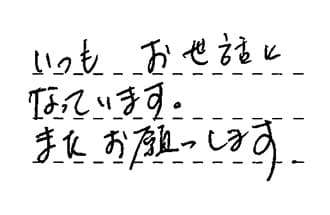 いつも お世話に
なっています。
また お願いします.